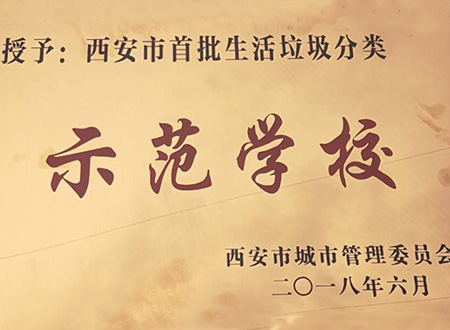 授予：西安市首批生活垃圾分类
示范学校
西安市城市管理委员会
二〇一八年六月